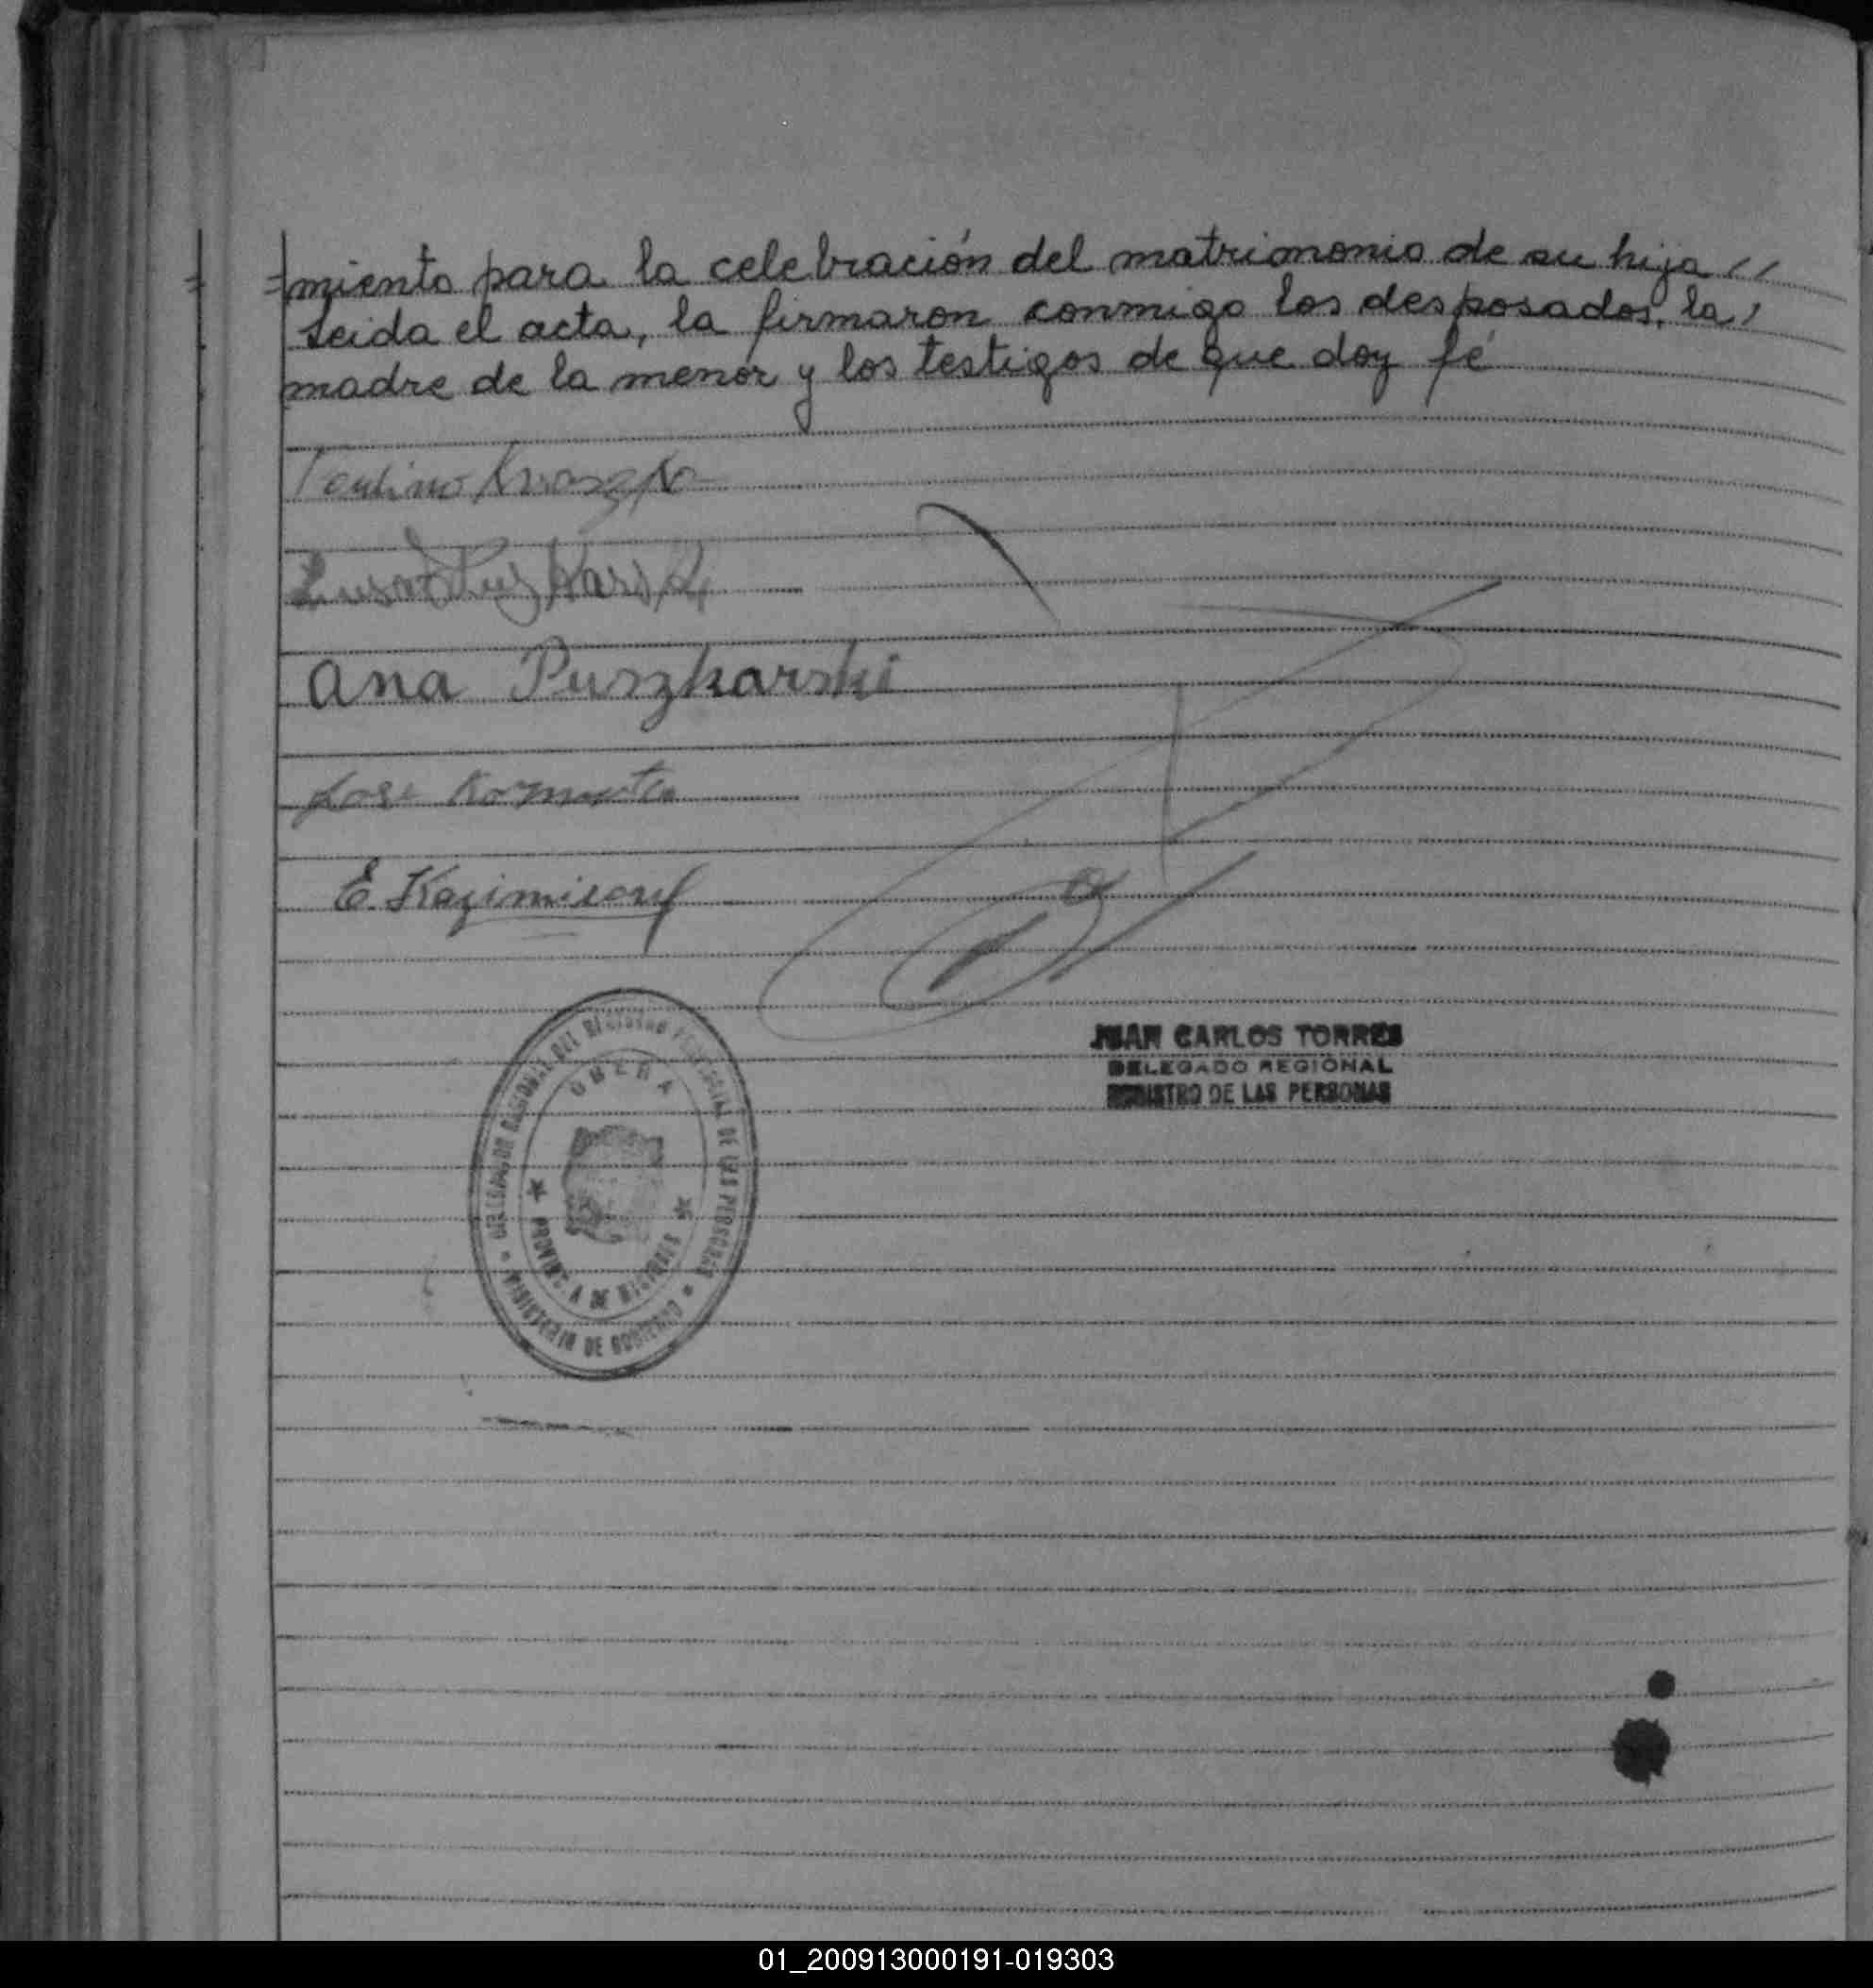 =miento para la celebración del matrimonio de su hija //
Leida el acta, la firmaron conmigo los desposados, la/
madre de la menor y los testigos de que doy fé
Ana Puszkarski
Jose
E. Kazimiero
JUAN CARLOS TORRES
DELEGADO REGIONAL
REGISTRO DE LAS PERSONAS
DEL REGISTRO PROVINCIAL DE LAS PERSONAS
OBERA
PROVINCIA DE MISIONES
MINISTERIO DE GOBIERNO
01_200913000191-019303